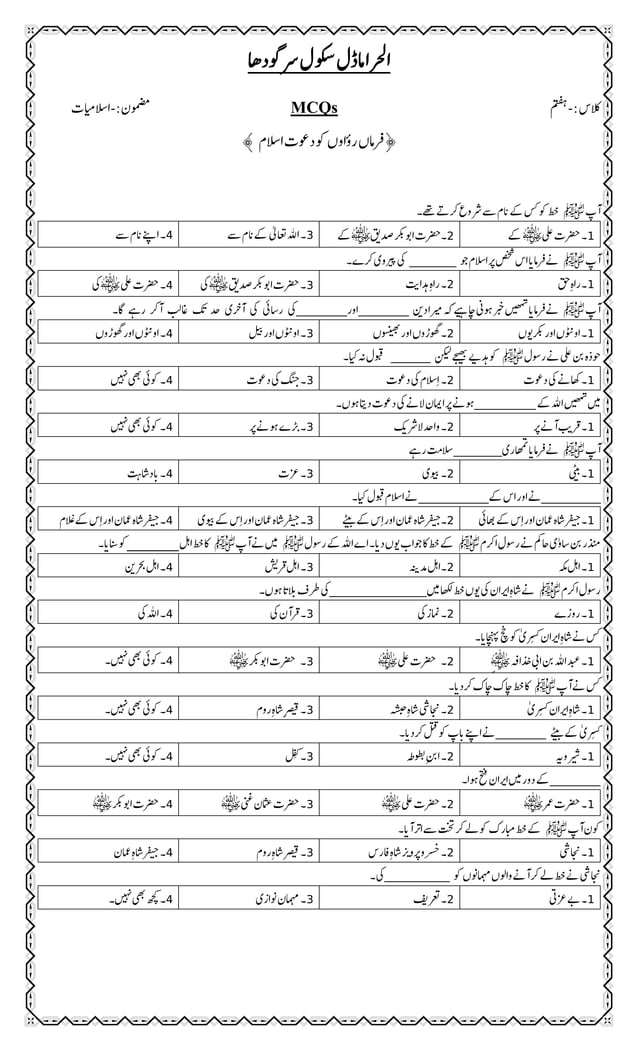 الحرا ماڈل سکول سرگودھا
کلاس :- ہفتم MCQs مضمون :- اسلامیات
﴿ فرماں رؤاوں کو دعوت اسلام ﴾
آپ ﷺ خط کو کس کے نام سے شروع کرتے تھے۔
1۔ حضرت علیؓ کے 2۔ حضرت ابو بکر صدیقؓ کے 3۔ اللہ تعالیٰ کے نام سے 4۔ اپنے نام سے
آپ ﷺ نے فرمایا اس شخص پر اسلام جو ______ کی پیروی کرے۔
1۔ راہِ حق 2۔ راہِ ہدایت 3۔ حضرت ابو بکر صدیقؓ کی 4۔ حضرت علیؓ کی
آپ ﷺ نے فرمایا تمھیں خبر ہونی چاہیے کہ میرا دین ______ اور ______ کی رسائی کی آخری حد تک غالب آ کر رہے گا۔
1۔ اونٹوں اور بکریوں 2۔ گھوڑوں اور بھینسوں 3۔ اونٹوں اور بیل 4۔ اونٹوں اور گھوڑوں
حوذہ بن علی نے رسول ﷺ کو ہدیے بھیجے لیکن ______ قبول نہ کیا۔
1۔ کھانے کی دعوت 2۔ اِسلام کی دعوت 3۔ جنگ کی دعوت 4۔ کوئی بھی نہیں
میں تمھیں اللہ کے ______ ہونے پر ایمان لانے کی دعوت دیتا ہوں۔
1۔ قریب آنے پر 2۔ واحد لاشریک 3۔ بڑے ہونے پر 4۔ کوئی بھی نہیں
آپ ﷺ نے فرمایا تمھاری ______ سلامت رہے
1۔ بیٹی 2۔ بیوی 3۔ عزت 4۔ بادشاہت
______ نے اور اس کے ______ نے اسلام قبول کیا۔
1۔ جیفر شاہ عمان اور اِس کے بھائی 2۔ جیفر شاہ عمان اور اِس کے بیٹے 3۔ جیفر شاہ عمان اور اِس کے بیوی 4۔ جیفر شاہ عمان اور اِس کے غلام
منذر بن ساوٰی حاکم نے رسول اکرم ﷺ کے خط کا جواب یوں دیا۔ اے اللہ کے رسول ﷺ میں نے آپ ﷺ کا خط اہل ______ کو سنایا۔
1۔ اہل مکہ 2۔ اہل مدینہ 3۔ اہل قریش 4۔ اہل بحرین
رسول اکرم ﷺ نے شاہِ ایران کی یوں خط لکھا میں ______ کی طرف بلاتا ہوں۔
1۔ روزے 2۔ نماز کی 3۔ قرآن کی 4۔ اللہ کی
کس نے شاہ ایران کسریٰ کو خط پہنچایا۔
1۔ عبداللہ بن ابی خذافہؓ 2۔ حضرت علیؓ 3۔ حضرت ابو بکرؓ 4۔ کوئی بھی نہیں۔
کس نے آپ ﷺ کا خط چاک چاک کر دیا۔
1۔ شاہِ ایران کسریٰ 2۔ نجاشی شاہِ حبشہ 3۔ قیصر شاہِ روم 4۔ کوئی بھی نہیں۔
کسریٰ کے بیٹے ______ نے اپنے باپ کو قتل کر دیا۔
1۔ شیرویہ 2۔ ابنِ بطوطہ 3۔ کفِل 4۔ کوئی بھی نہیں۔
______ کے دور میں ایران فتح ہوا۔
1۔ حضرت عمرؓ 2۔ حضرت علیؓ 3۔ حضرت عثمان غنیؓ 4۔ حضرت ابو بکرؓ
کون آپ ﷺ کے خط مبارک کو لے کر تخت سے اتر آیا۔
1۔ نجاشی 2۔ خسرو پرویز شاہِ فارس 3۔ قیصر شاہِ روم 4۔ جیفر شاہِ عمان
نجاشی نے خط لے کر آنے والوں مہمانوں کو ______ کی۔
1۔ بے عزتی 2۔ تعریف 3۔ مہمان نوازی 4۔ کچھ بھی نہیں۔